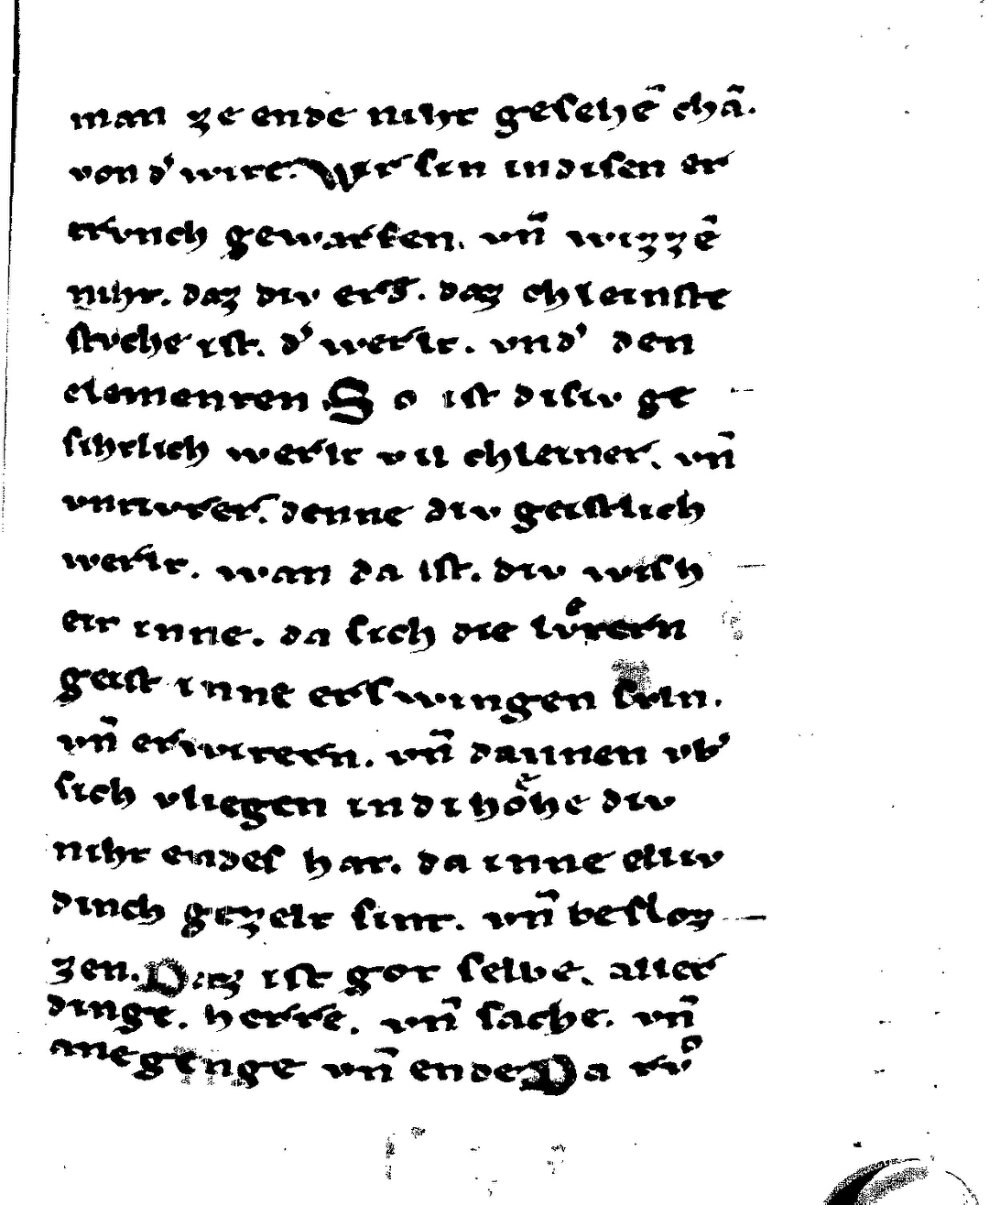 man ze ende niht gesehē chā.
von d᾽ wite. Wir sin in disen er
trvnch gewarfen. vn̄ wizzē
niht. daz div erd᾽. daz chleinste
stvche ist. d᾽ werlt. vnd᾽ den
elementen So ist disiv ge
sihtlich werlt vil chleiner. vn̄
vntivrer. denne div geistlich
werlt. wan da ist. div wish
eit inne. da sich die lvͤtern
geist inne erswingen svln.
vn̄ erwitern. vn̄ dannen vb᾽
sich vliegen in di hoͤhe div
niht endes hat. da inne elliv
dinch gezelt sint. vn̄ besloz
zen. Daz ist got selbe. aller
dinge. herre. vn̄ sache. vn̄
anegenge vn̄ ende Da tvͦ